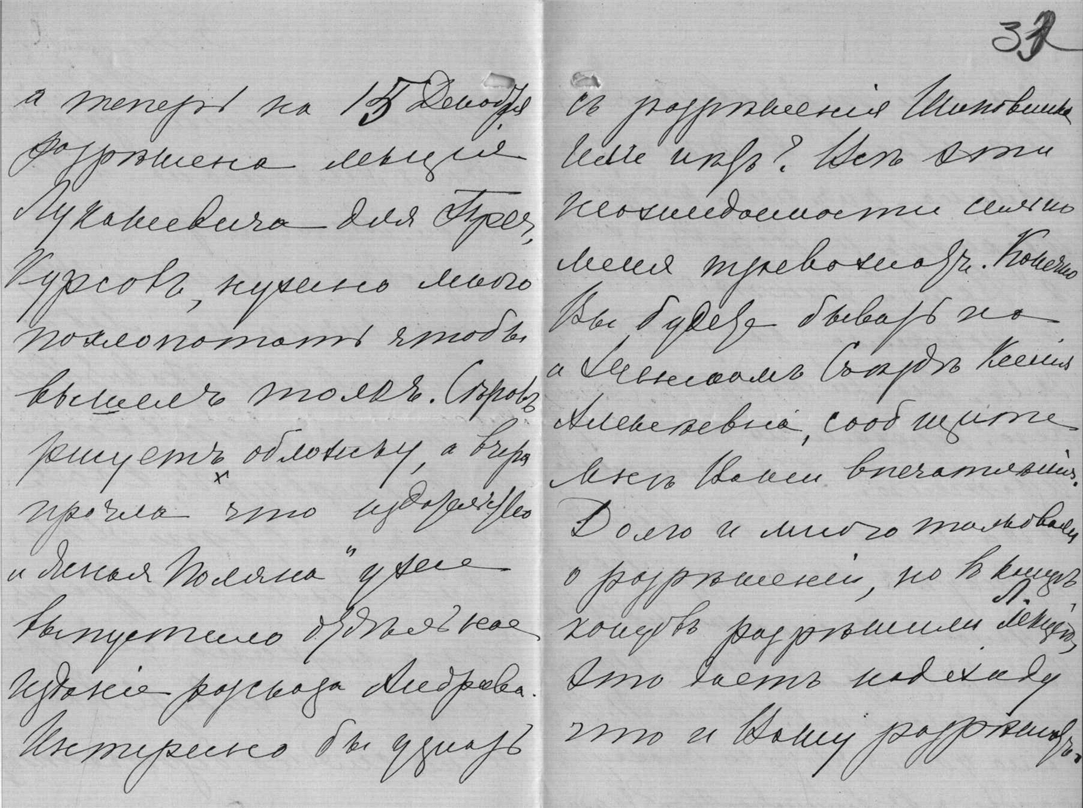 32
а теперь на 15 Декабря
разрѣшена лекція
Лукашевича для Преч.
Курсовъ, нужно много
похлопотать чтобы
вышелъ толкъ. Сѣровъ
рисуетъ обложку, а вчера
прочла что издательство
„Ясная Поляна" уже
выпустило отдѣльное
изданіе разсказа Андреева.
Интересно бы узнать
съ разрѣшенія Шиповника
или нѣтъ? Всѣ эти
неожиданности сильно
меня тревожатъ. Конечно
Вы будете бывать на
Женскомъ Съѣздѣ Ксенія
Алексѣевна, сообщите
мнѣ Ваши впечатлѣнія.
Долго и много толковали
о разрѣшеніи, но въ концѣ
концовъ разрѣшили лекцію,
это даетъ надежду
что и Вашу разрѣшатъ.